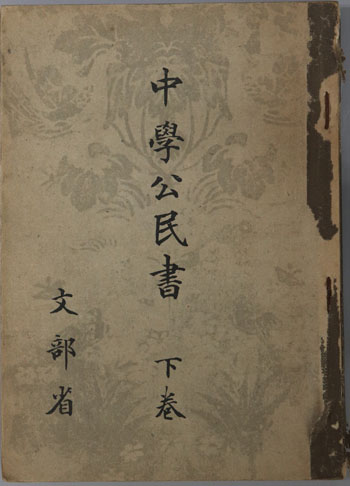 中學公民書 下巻
文部省